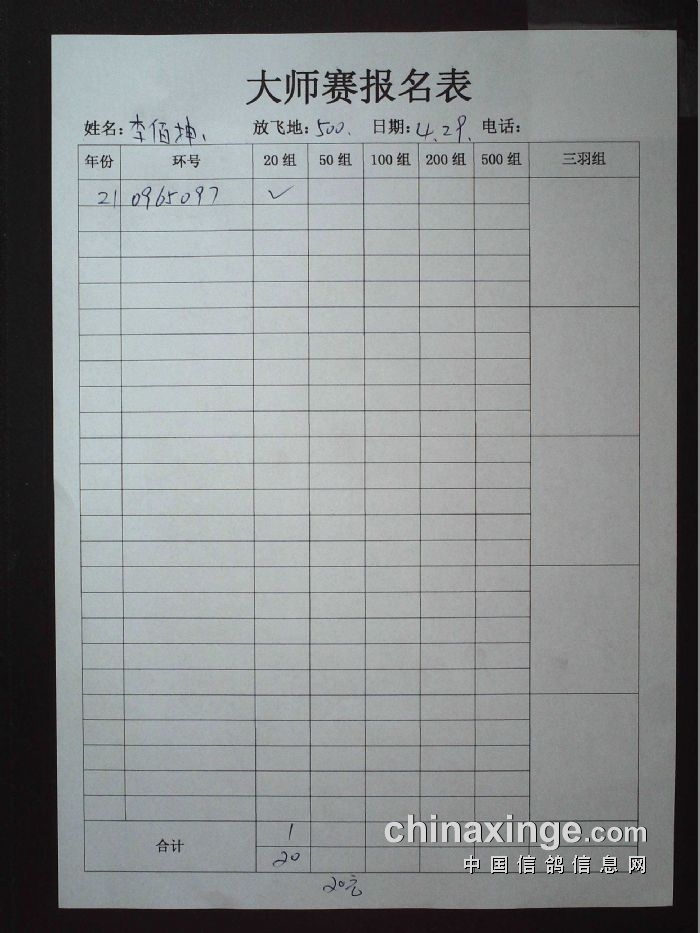 大师赛报名表
姓名：李佰坤、 放飞地：500. 日期：4.29. 电话：
年份 环号 20 组 50 组 100 组 200 组 500 组 三羽组
21 0965097 ✓
合计 1
20
20元
chinaxinge.com
中国信鸽信息网